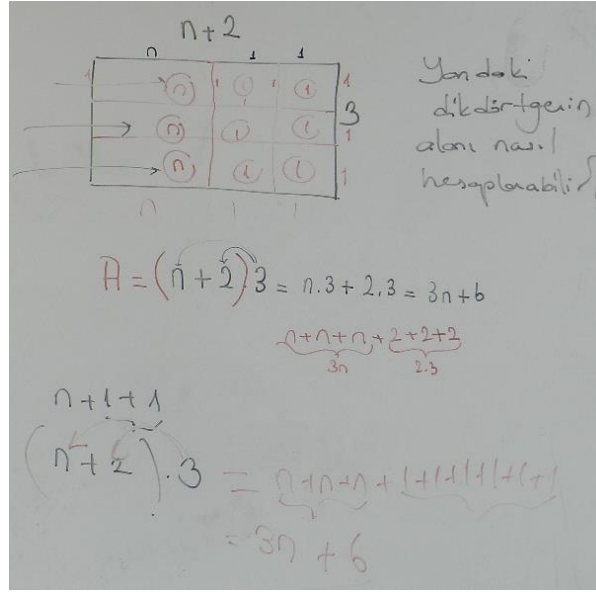 n+2
n 1 1
n 1 1 1
n 1 1 1
n 1 1 1
3
n 1 1
Yandaki
dikdörtgenin
alanı nasıl
hesaplanabilir
A = (n+2).3 = n.3 + 2.3 = 3n+6
n+n+n + 2+2+2
3n 2.3
n+1+1
(n+2).3 = n+n+n + 1+1+1+1+1+1
= 3n + 6